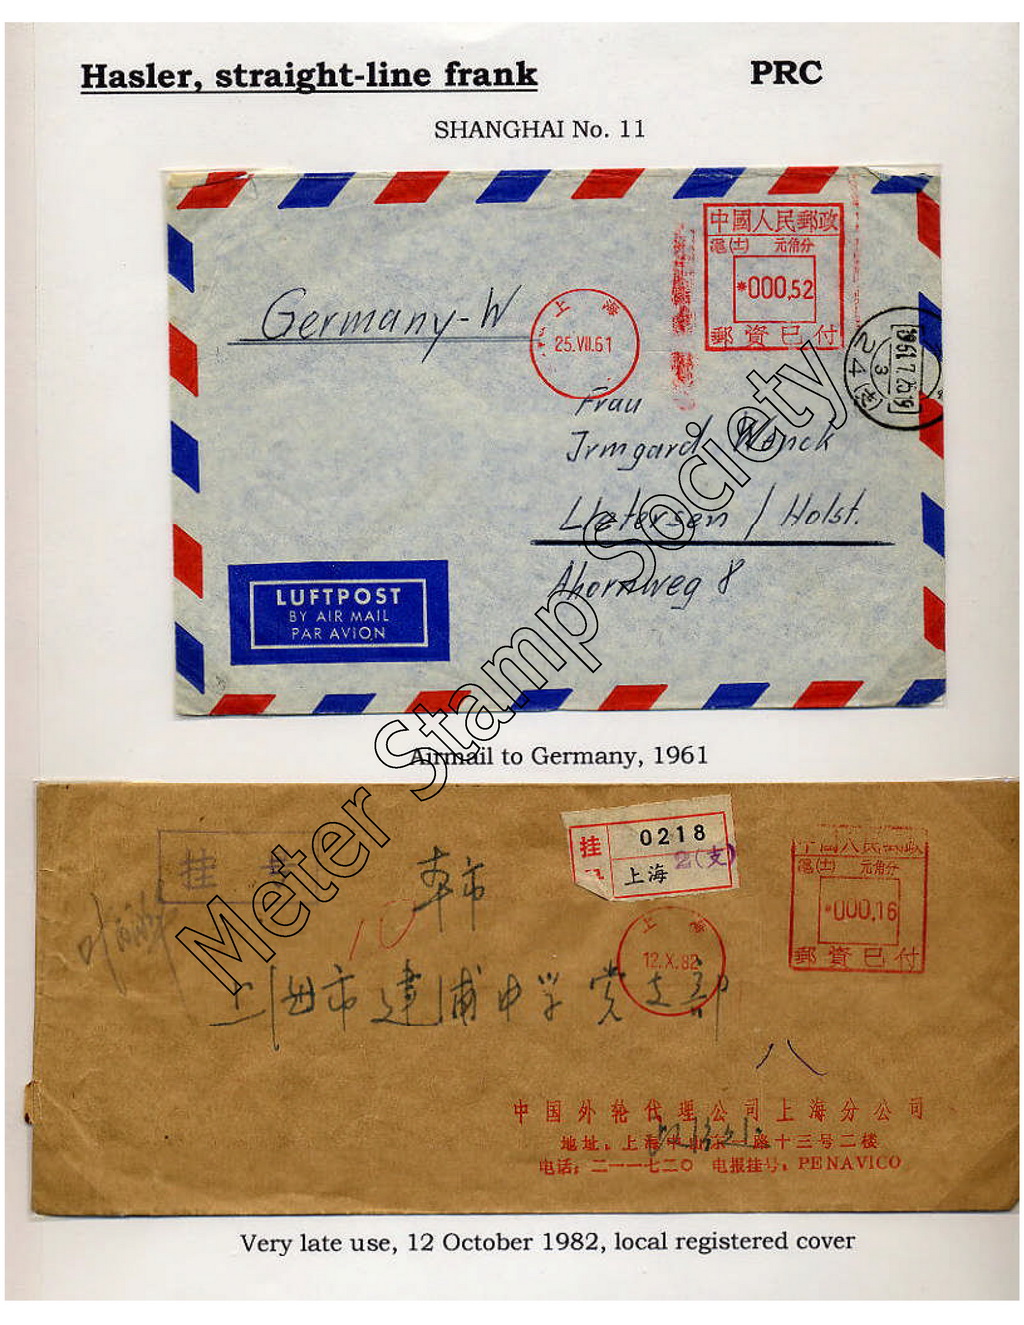 Hasler, straight-line frank
PRC
SHANGHAI No. 11
中國人民郵政
滬(士) 元角分
*000,52
郵資已付
上海
25.VII.61
Germany-W
Frau
Irmgard Wenck
Uetersen / Holst.
Ahornweg 8
LUFTPOST
BY AIR MAIL
PAR AVION
Airmail to Germany, 1961
挂号
挂
0218
上海 2(支)
中國人民郵政
滬(士) 元角分
*000,16
郵資已付
上海
12.X.82
本市
上海市建浦中学党支部
中国外轮代理公司上海分公司
地址：上海中山东一路十三号二楼
电话：二一一七二〇 电报挂号：PENAVICO
Very late use, 12 October 1982, local registered cover
Meter Stamp Society